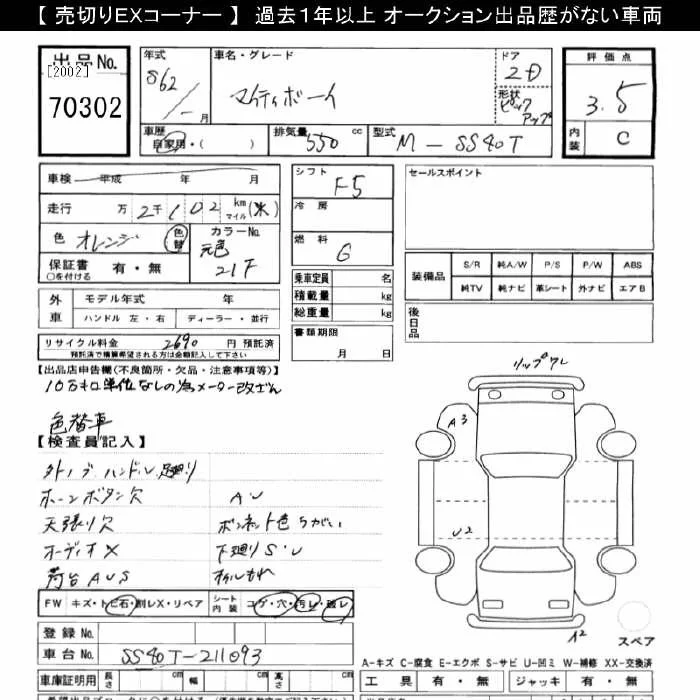 【 売切りEXコーナー 】 過去１年以上 オークション出品歴がない車両
出品No.
[2002]
70302
年式
S62/ー月
車名・グレード
マイティボーイ
ドア
2D
形状
ピックアップ
評価点
3.5
内装
C
車歴
自家用・( )
排気量
550 cc
型式
M-SS40T
車検 平成 年 月
走行 万 2千 1 0 2 km マイル (米)
色 オレンジ 色替
カラーNo.
元色
21F
保証書
○を付ける
有・無
外車
モデル年式 年
ハンドル 左・右 ディーラー・並行
リサイクル料金 2690 円 預託済
預託済で精算希望される方は金額記入して下さい
シフト
F5
冷房
燃料
G
乗車定員 名
積載量 kg
総重量 kg
書類期限
月 日
セールスポイント
装備品
S/R 純A/W P/S P/W ABS
純TV 純ナビ 革シート 外ナビ エアB
後日品
【出品店申告欄(不良箇所・欠品・注意事項等)】
10万キロ単位なしの為メーター改ざん
色替車
【検査員記入】
外ノブ ハンドル 足廻り
ホーンボタン欠 AU
天張り欠 ボンネット色ちがい
オーディオX 下廻りS・U
荷台AUS オイルもれ
FW キズ・トビ石・割レX・リペア シート内装 コゲ・穴・汚レ・破レ
登録No.
車台No. SS40T-211093
車庫証明用 長さ cm 幅 cm 高さ cm
リップクレ
A3
U2
A2
スペア
A-キズ C-腐食 E-エクボ S-サビ U-凹ミ W-補修 XX-交換済
工具 有・無 ジャッキ 有・無